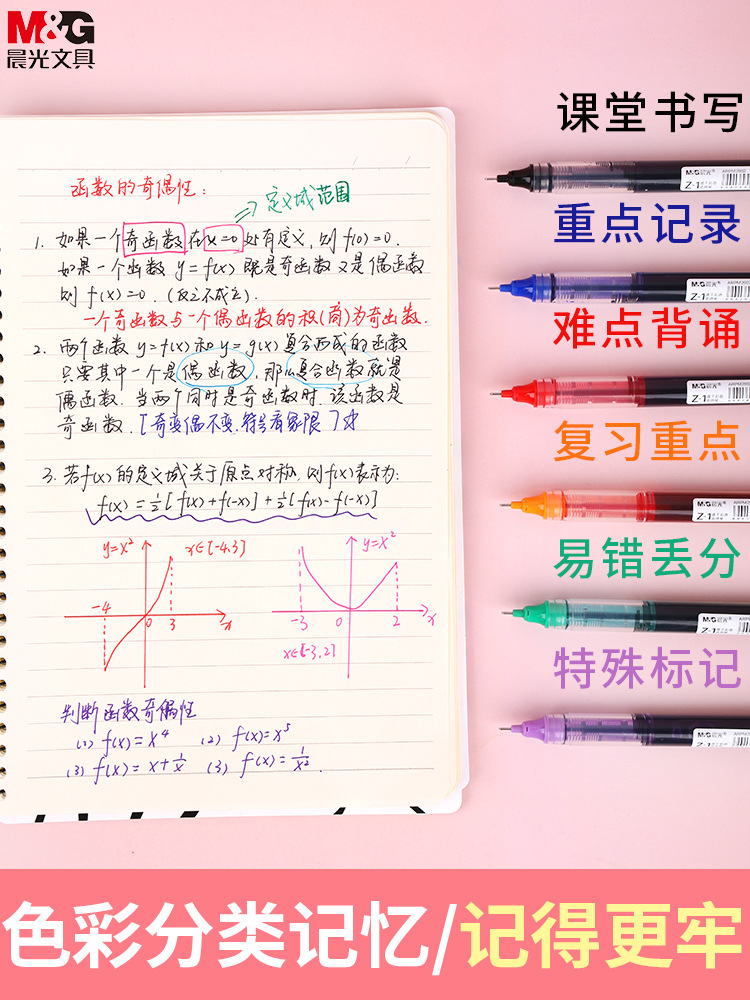 M&G
晨光文具
函数的奇偶性：
⇒ 定义域范围
1. 如果一个奇函数在x=0处有定义，则f(0)=0.
如果一个函数 y=f(x) 既是奇函数又是偶函数
则 f(x)=0. (反之不成立).
一个奇函数与一个偶函数的积(商)为奇函数.
2. 两个函数 y=f(x) 和 y=g(x) 复合而成的函数
只要其中一个是偶函数，那么复合函数就是
偶函数. 当两个同时是奇函数时，该函数是
奇函数.【奇变偶不变,符号看象限】
3. 若f(x)的定义域关于原点对称，则f(x)表示为:
f(x)=½[f(x)+f(-x)]+½[f(x)-f(-x)]
y=x² x∈[-4,3]
-4 0 3 x
y=x²
-3 0 2 x
x∈[-3,2]
判断函数奇偶性
(1) f(x)=x⁴ (2) f(x)=x⁵
(3) f(x)=x+1/x (3) f(x)=1/x².
课堂书写
M&G 晨光
Z-1
重点记录
M&G 晨光
Z-1
难点背诵
M&G 晨光
Z-1
复习重点
M&G 晨光
Z-1
易错丢分
M&G 晨光
Z-1
特殊标记
M&G 晨光
Z-1
色彩分类记忆/记得更牢